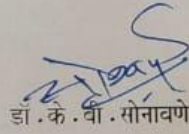 डॉ . के . वा . सोनावणे